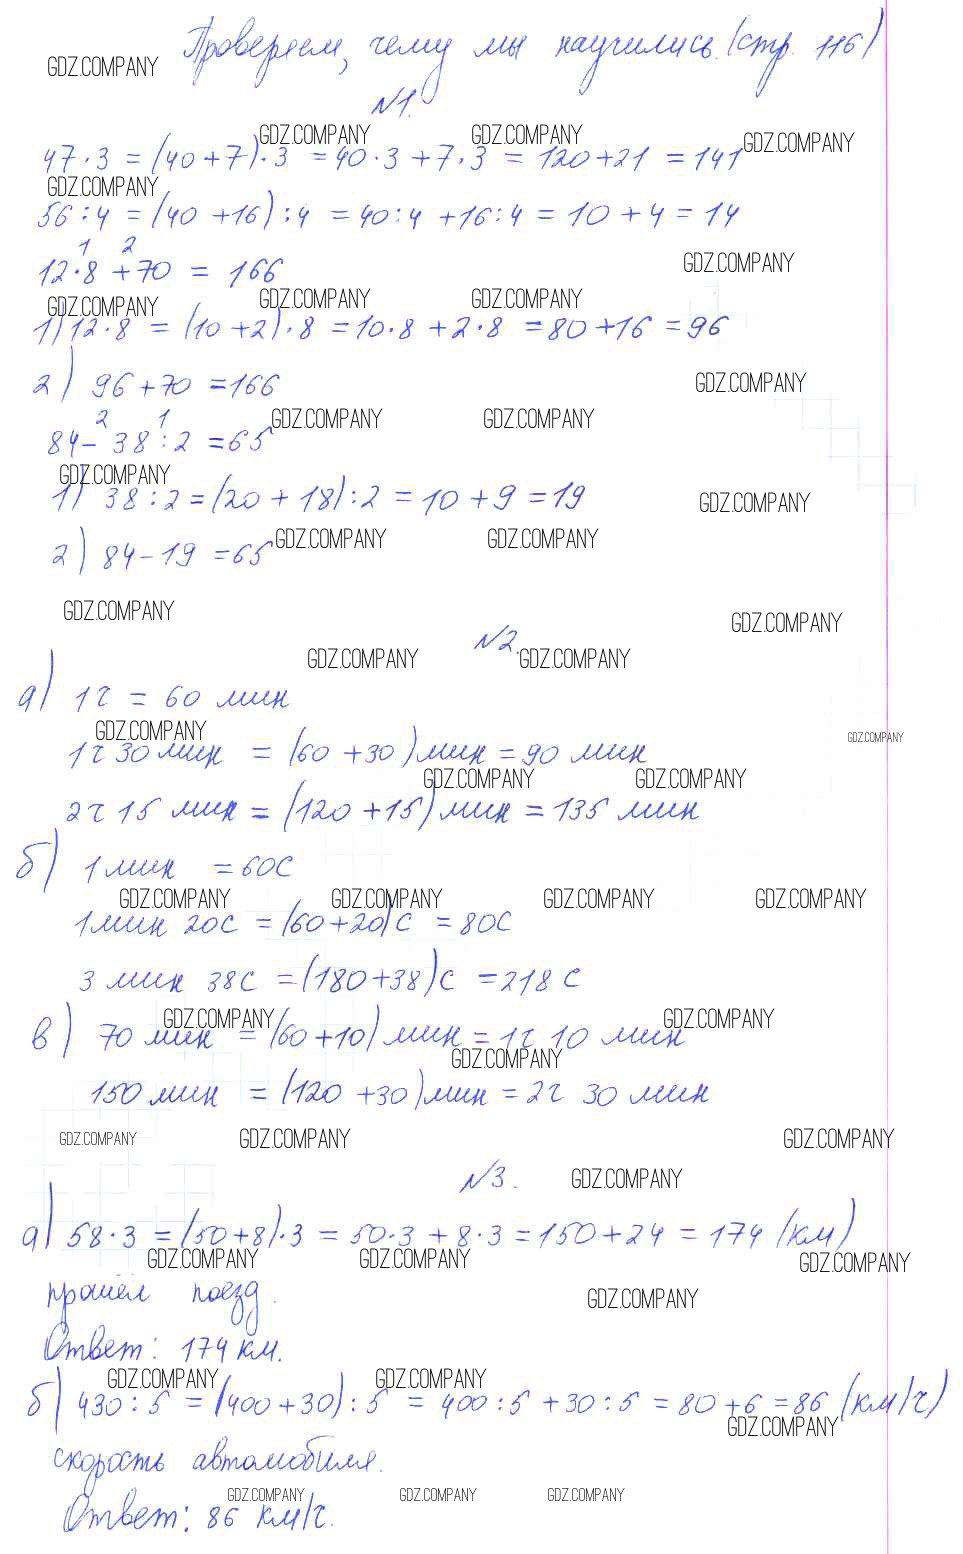 Проверяем, чему мы научились. (стр. 116)
GDZ.COMPANY
№1.
GDZ.COMPANY GDZ.COMPANY GDZ.COMPANY
47·3 = (40+7)·3 = 40·3+7·3 = 120+21 = 141
GDZ.COMPANY
56:4 = (40+16):4 = 40:4+16:4 = 10+4=14
1 2
12·8+70 = 166
GDZ.COMPANY
GDZ.COMPANY GDZ.COMPANY GDZ.COMPANY
1) 12·8 = (10+2)·8 = 10·8+2·8 = 80+16 = 96
2) 96+70 = 166
GDZ.COMPANY
2 1
GDZ.COMPANY GDZ.COMPANY
84-38:2 = 65
GDZ.COMPANY
1) 38:2 = (20+18):2 = 10+9 = 19
GDZ.COMPANY
GDZ.COMPANY GDZ.COMPANY
2) 84-19 = 65
GDZ.COMPANY GDZ.COMPANY
№2.
GDZ.COMPANY GDZ.COMPANY
а) 1ч = 60 мин
GDZ.COMPANY GDZ.COMPANY
1ч 30 мин = (60+30) мин = 90 мин
GDZ.COMPANY GDZ.COMPANY
2ч 15 мин = (120+15) мин = 135 мин
б) 1 мин = 60с
GDZ.COMPANY GDZ.COMPANY GDZ.COMPANY GDZ.COMPANY
1 мин 20с = (60+20)с = 80с
3 мин 38с = (180+38)с = 218с
GDZ.COMPANY GDZ.COMPANY
в) 70 мин = (60+10) мин = 1ч 10 мин
GDZ.COMPANY
150 мин = (120+30) мин = 2ч 30 мин
GDZ.COMPANY GDZ.COMPANY GDZ.COMPANY
№3.
GDZ.COMPANY
а) 58·3 = (50+8)·3 = 50·3+8·3 = 150+24 = 174 (км)
GDZ.COMPANY GDZ.COMPANY GDZ.COMPANY
прошёл поезд.
GDZ.COMPANY
Ответ: 174 км.
GDZ.COMPANY GDZ.COMPANY
б) 430:5 = (400+30):5 = 400:5+30:5 = 80+6 = 86 (км/ч)
GDZ.COMPANY
скорость автомобиля.
GDZ.COMPANY GDZ.COMPANY GDZ.COMPANY
Ответ: 86 км/ч.